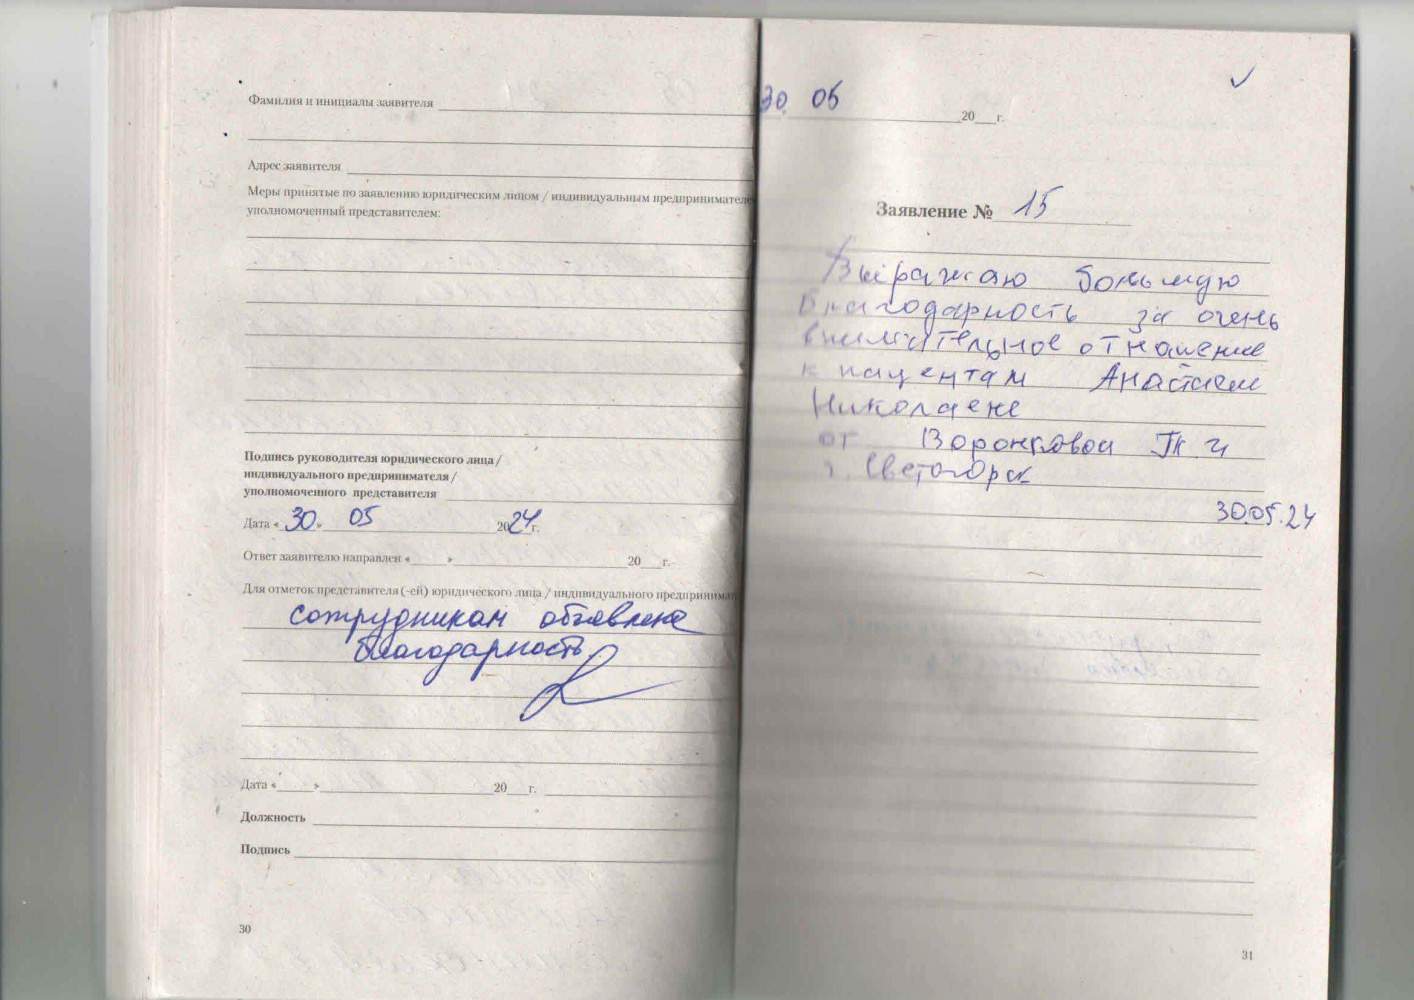 Фамилия и инициалы заявителя
Адрес заявителя
Меры принятые по заявлению юридическим лицом / индивидуальным предпринимателе
уполномоченный представителем:
Подпись руководителя юридического лица /
индивидуального предпринимателя /
уполномоченного представителя
Дата « 30 » 05 2024г.
Ответ заявителю направлен « » 20 г.
Для отметок представителя (-ей) юридического лица / индивидуального предпринимат
сотрудникам объявлена
благодарность
Дата « » 20 г.
Должность
Подпись
30
30. 05 20 г.
Заявление № 15
Выражаю большую
благодарность за очень
внимательное отношение
к пациентам Анастасии
Николаевне
от Воронковой
г. Светогорск
30.05.24
31